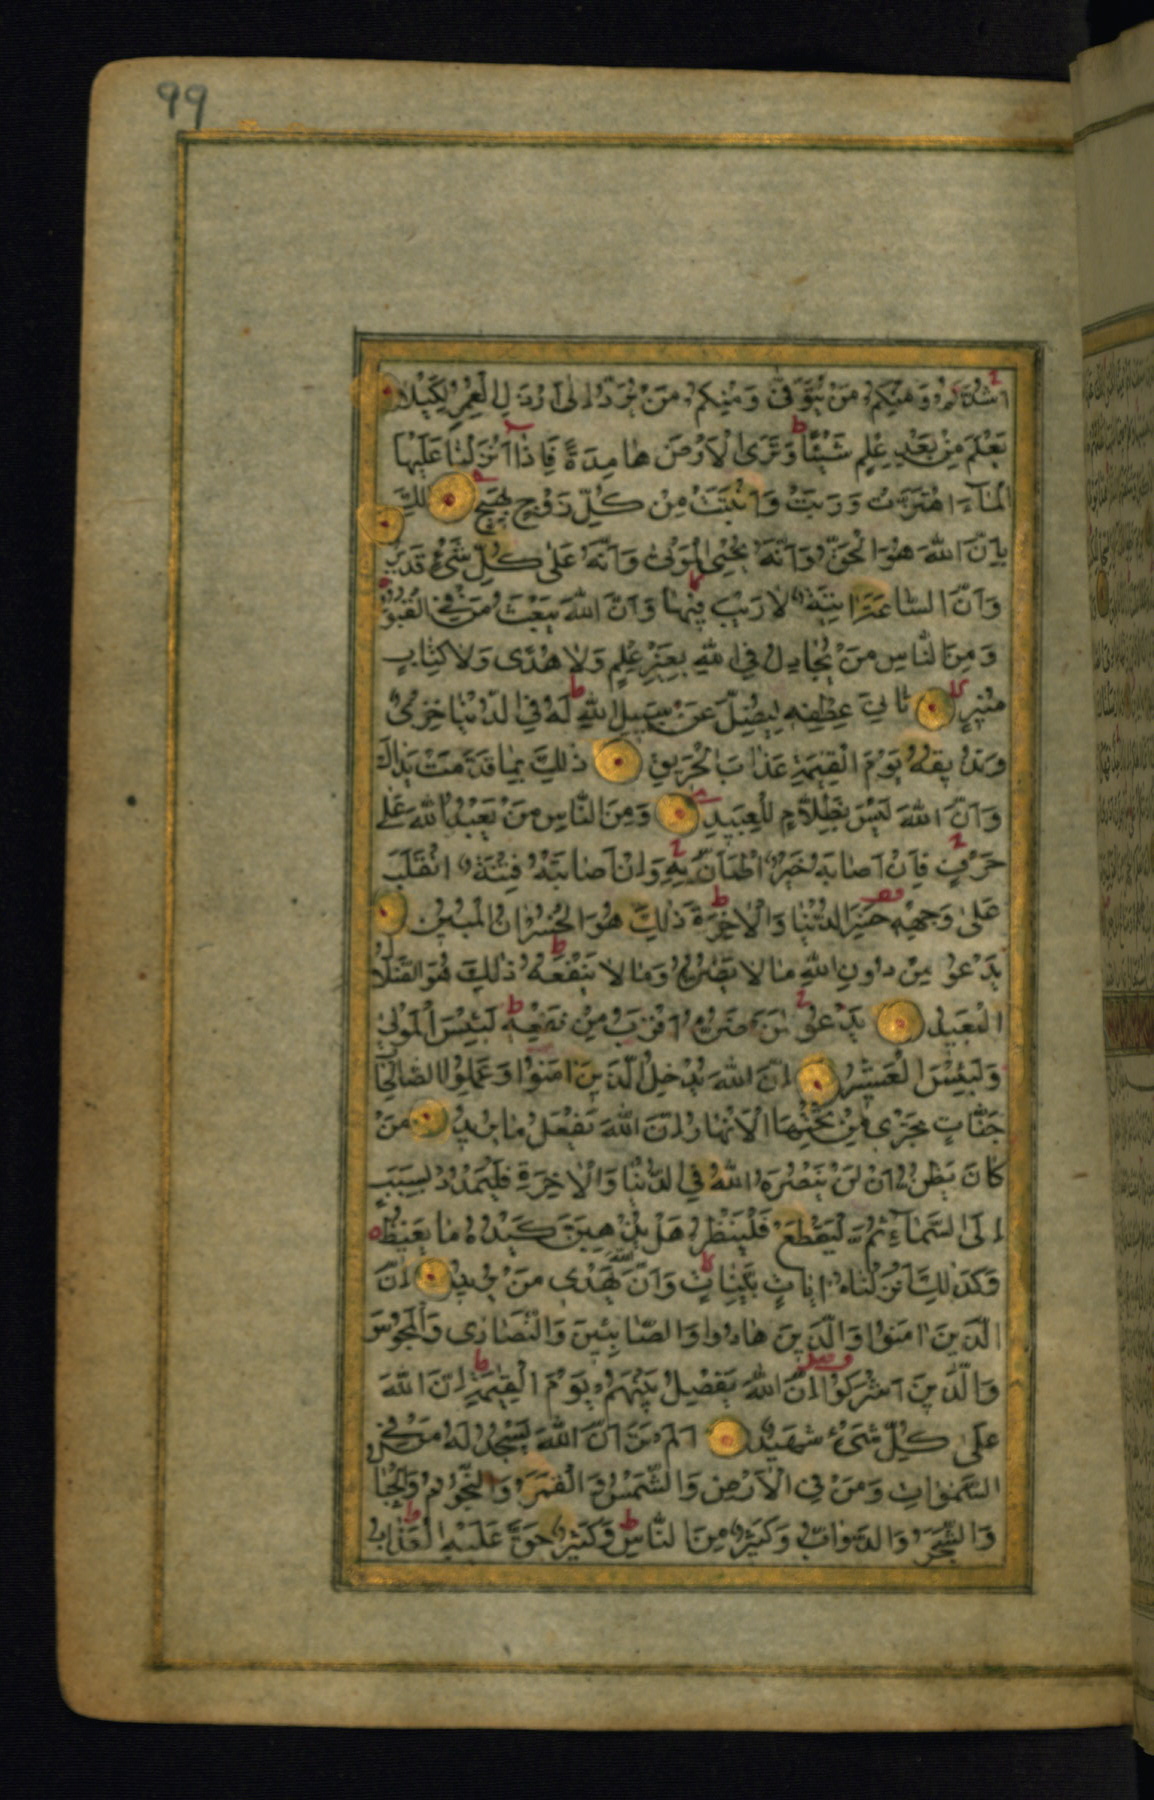 99
اَشُدَّكُمْ وَمِنْكُمْ مَنْ يُتَوَفّٰى وَمِنْكُمْ مَنْ يُرَدُّ اِلٰى اَرْذَلِ الْعُمُرِ لِكَيْلَا
يَعْلَمَ مِنْ بَعْدِ عِلْمٍ شَيْئًا وَتَرَى الْاَرْضَ هَامِدَةً فَاِذَا اَنْزَلْنَا عَلَيْهَا
الْمَاءَ اهْتَزَّتْ وَرَبَتْ وَاَنْبَتَتْ مِنْ كُلِّ زَوْجٍ بَهِيجٍ ذٰلِكَ
بِاَنَّ اللّٰهَ هُوَ الْحَقُّ وَاَنَّهُ يُحْيِي الْمَوْتٰى وَاَنَّهُ عَلٰى كُلِّ شَيْءٍ قَدِيرٌ
وَاَنَّ السَّاعَةَ اٰتِيَةٌ لَا رَيْبَ فِيهَا وَاَنَّ اللّٰهَ يَبْعَثُ مَنْ فِي الْقُبُورِ
وَمِنَ النَّاسِ مَنْ يُجَادِلُ فِي اللّٰهِ بِغَيْرِ عِلْمٍ وَلَا هُدًى وَلَا كِتَابٍ
مُنِيرٍ ثَانِيَ عِطْفِهِ لِيُضِلَّ عَنْ سَبِيلِ اللّٰهِ لَهُ فِي الدُّنْيَا خِزْيٌ
وَنُذِيقُهُ يَوْمَ الْقِيٰمَةِ عَذَابَ الْحَرِيقِ ذٰلِكَ بِمَا قَدَّمَتْ يَدَاكَ
وَاَنَّ اللّٰهَ لَيْسَ بِظَلَّامٍ لِلْعَبِيدِ وَمِنَ النَّاسِ مَنْ يَعْبُدُ اللّٰهَ عَلٰى
حَرْفٍ فَاِنْ اَصَابَهُ خَيْرٌ اطْمَاَنَّ بِهِ وَاِنْ اَصَابَتْهُ فِتْنَةٌ انْقَلَبَ
عَلٰى وَجْهِهِ خَسِرَ الدُّنْيَا وَالْاٰخِرَةَ ذٰلِكَ هُوَ الْخُسْرَانُ الْمُبِينُ
يَدْعُو مِنْ دُونِ اللّٰهِ مَا لَا يَضُرُّهُ وَمَا لَا يَنْفَعُهُ ذٰلِكَ هُوَ الضَّلَالُ
الْبَعِيدُ يَدْعُو لَمَنْ ضَرُّهُ اَقْرَبُ مِنْ نَفْعِهِ لَبِئْسَ الْمَوْلٰى
وَلَبِئْسَ الْعَشِيرُ اِنَّ اللّٰهَ يُدْخِلُ الَّذِينَ اٰمَنُوا وَعَمِلُوا الصَّالِحَاتِ
جَنَّاتٍ تَجْرِي مِنْ تَحْتِهَا الْاَنْهَارُ اِنَّ اللّٰهَ يَفْعَلُ مَا يُرِيدُ مَنْ
كَانَ يَظُنُّ اَنْ لَنْ يَنْصُرَهُ اللّٰهُ فِي الدُّنْيَا وَالْاٰخِرَةِ فَلْيَمْدُدْ بِسَبَبٍ
اِلَى السَّمَاءِ ثُمَّ لْيَقْطَعْ فَلْيَنْظُرْ هَلْ يُذْهِبَنَّ كَيْدُهُ مَا يَغِيظُ
وَكَذٰلِكَ اَنْزَلْنَاهُ اٰيَاتٍ بَيِّنَاتٍ وَاَنَّ اللّٰهَ يَهْدِي مَنْ يُرِيدُ اِنَّ
الَّذِينَ اٰمَنُوا وَالَّذِينَ هَادُوا وَالصَّابِئِينَ وَالنَّصَارٰى وَالْمَجُوسَ
وَالَّذِينَ اَشْرَكُوا اِنَّ اللّٰهَ يَفْصِلُ بَيْنَهُمْ يَوْمَ الْقِيٰمَةِ اِنَّ اللّٰهَ
عَلٰى كُلِّ شَيْءٍ شَهِيدٌ اَلَمْ تَرَ اَنَّ اللّٰهَ يَسْجُدُ لَهُ مَنْ فِي
السَّمٰوَاتِ وَمَنْ فِي الْاَرْضِ وَالشَّمْسُ وَالْقَمَرُ وَالنُّجُومُ وَالْجِبَا
وَالشَّجَرُ وَالدَّوَابُّ وَكَثِيرٌ مِنَ النَّاسِ وَكَثِيرٌ حَقَّ عَلَيْهِ الْعَذَابُ